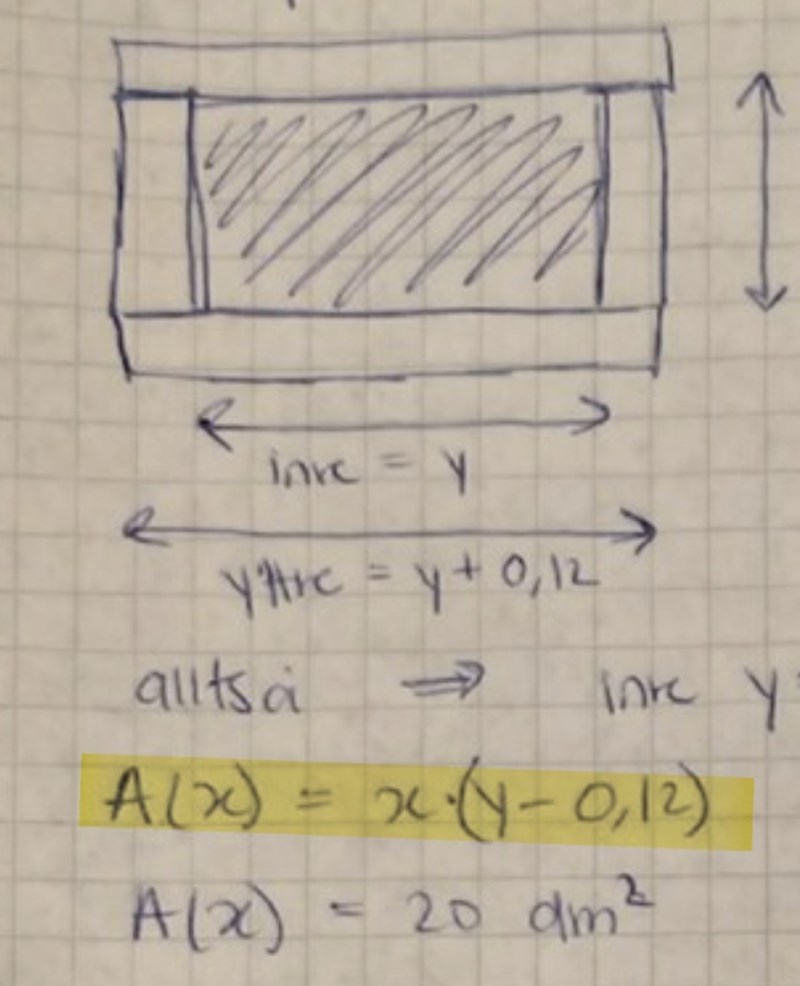 inre = y
yttre = y + 0,12
alltså ⇒ inre y
A(x) = x·(y - 0,12)
A(x) = 20 dm²